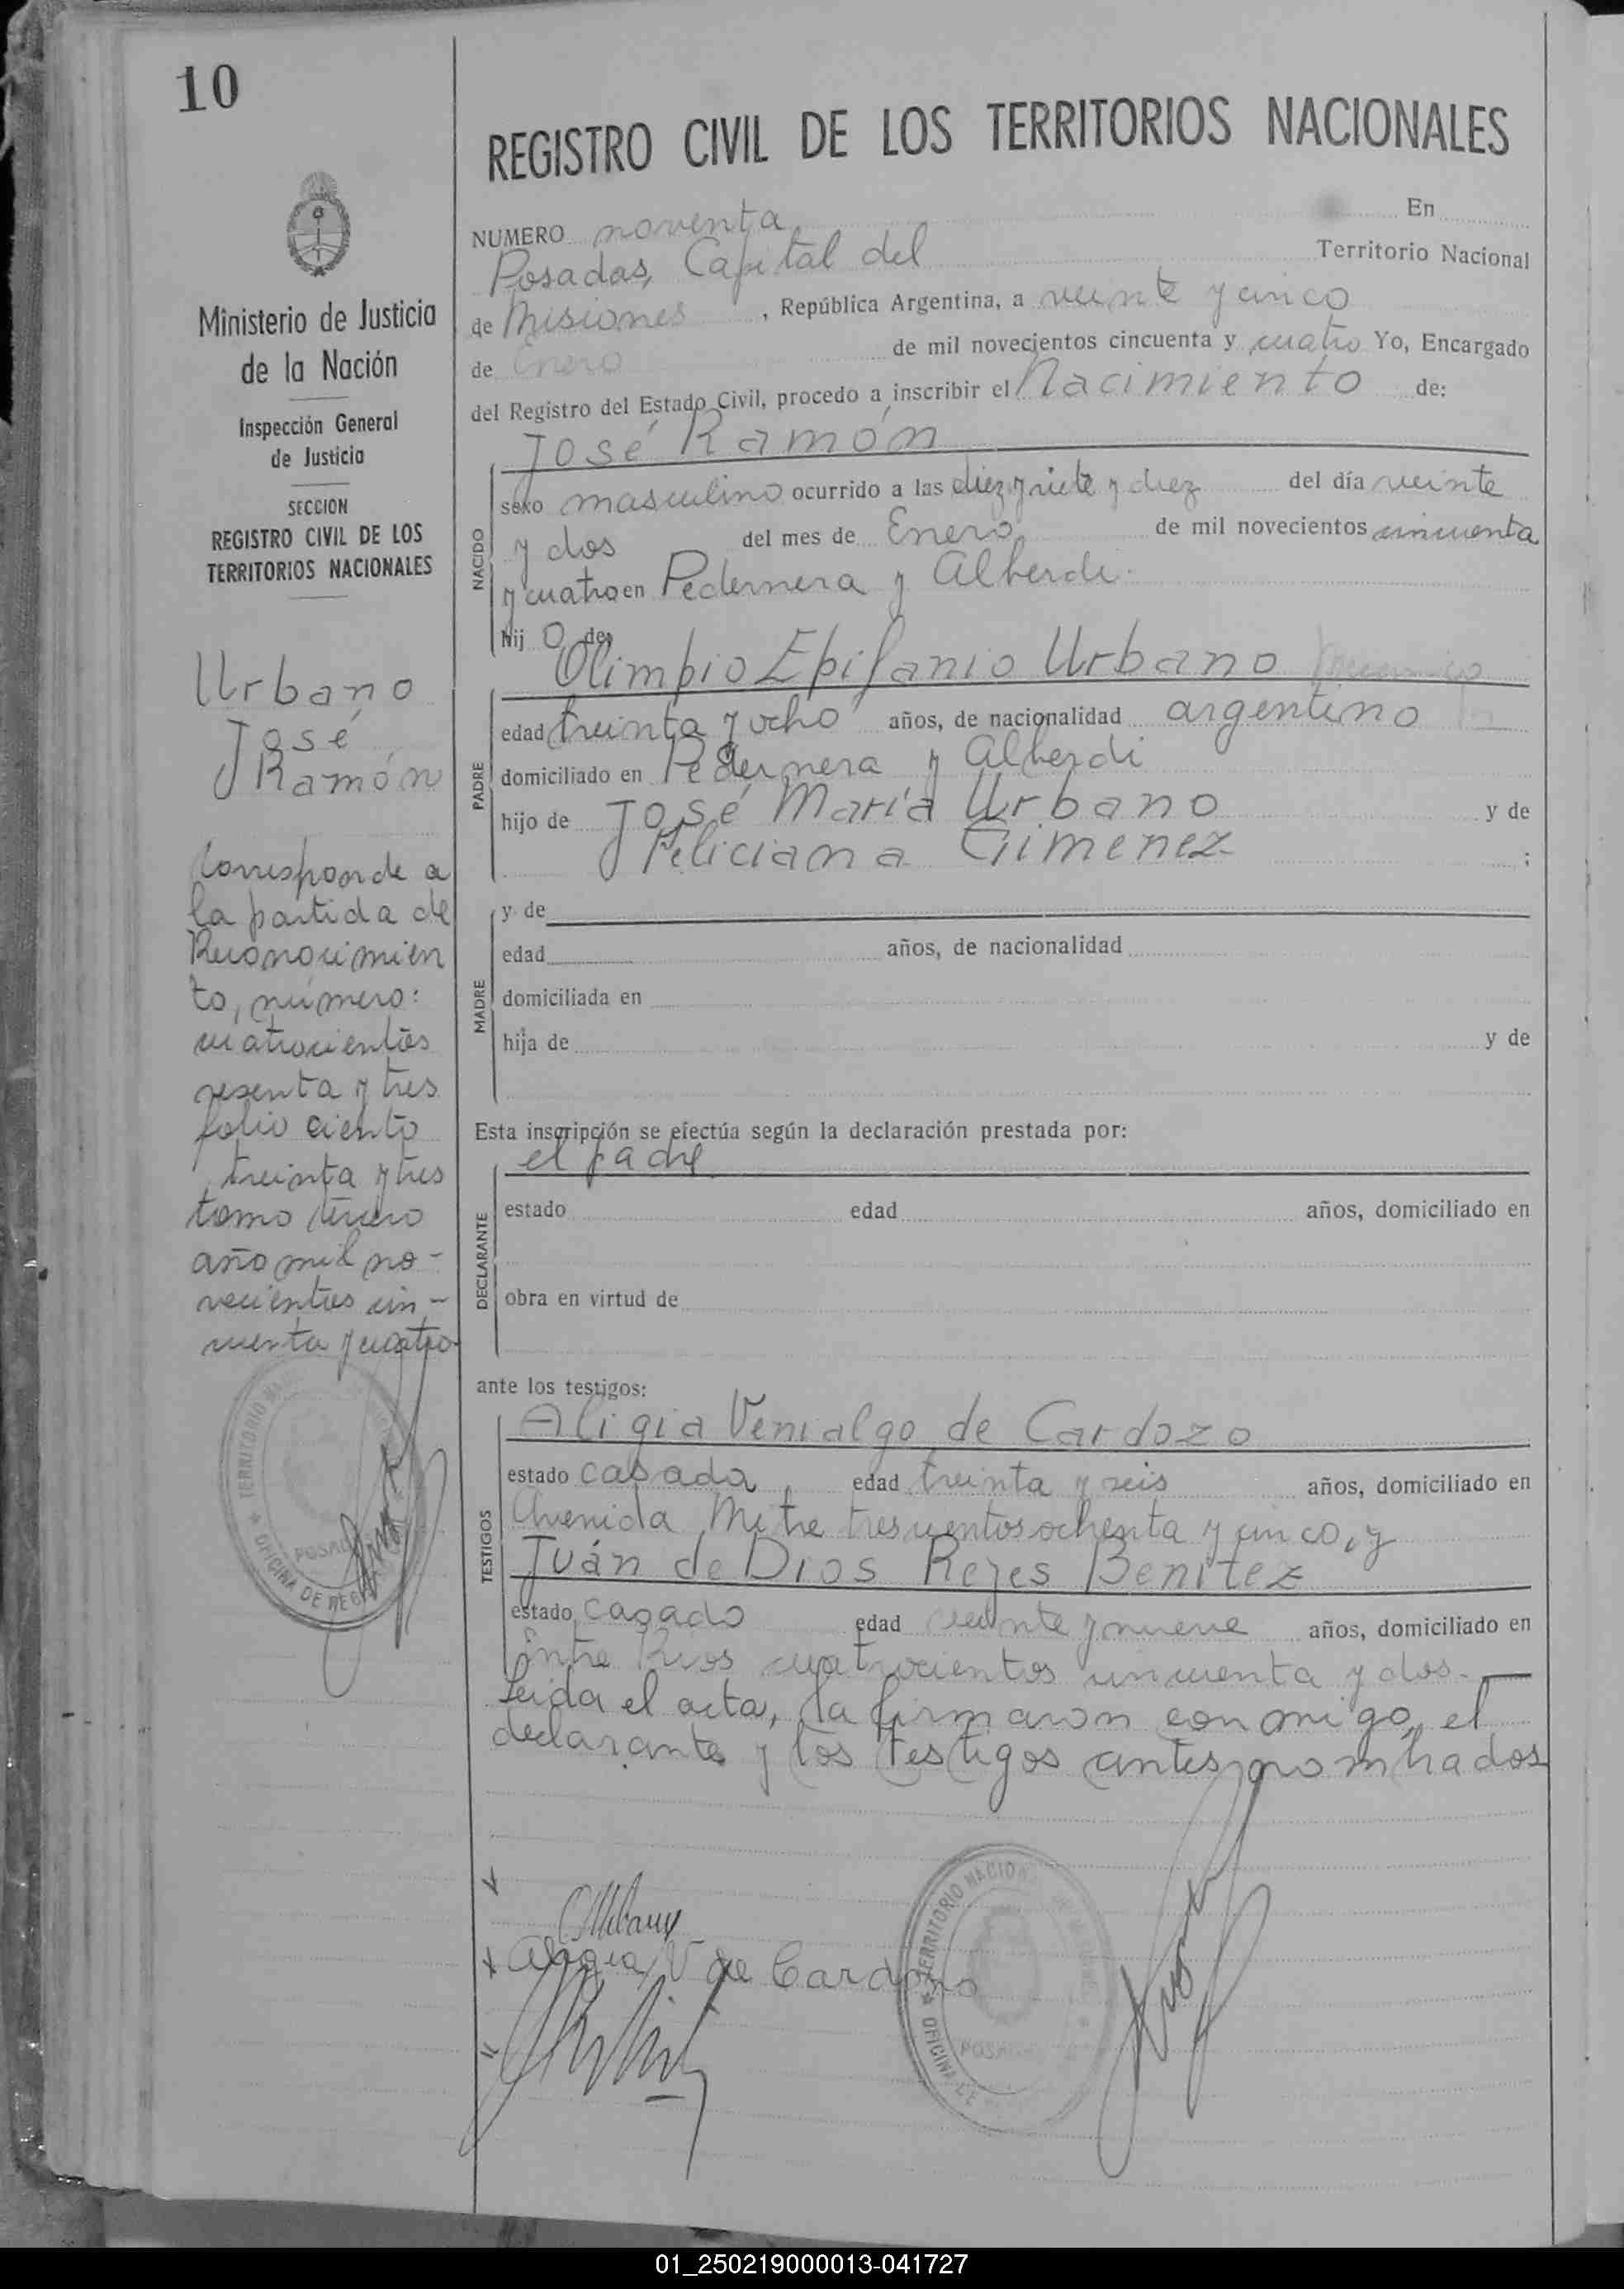 10
REGISTRO CIVIL DE LOS TERRITORIOS NACIONALES
Ministerio de Justicia
de la Nación
Inspección General
de Justicia
SECCION
REGISTRO CIVIL DE LOS
TERRITORIOS NACIONALES
Urbano
José
Ramón
Corresponde a
la partida de
Reconocimien
to, número:
cuatrocientos
sesenta y tres
folio ciento
treinta y tres
tomo tercero
año mil no-
vecientos cin-
cuenta y cuatro
TERRITORIO
OFICINA DE REG
POSADAS
NUMERO noventa En
Posadas, Capital del Territorio Nacional
de Misiones, República Argentina, a veinte y cinco
de Enero de mil novecientos cincuenta y cuatro Yo, Encargado
del Registro del Estado Civil, procedo a inscribir el Nacimiento de:
José Ramón
NACIDO
sexo masculino ocurrido a las diez y siete y diez del día veinte
y dos del mes de Enero de mil novecientos cincuenta
y cuatro en Pedernera y Alberdi.
hij o de
Olimpio Epifanio Urbano
PADRE
edad treinta y ocho años, de nacionalidad argentino
domiciliado en Pedernera y Alberdi
hijo de José María Urbano y de
Feliciana Gimenez ;
MADRE
y de
edad años, de nacionalidad
domiciliada en
hija de y de
Esta inscripción se efectúa según la declaración prestada por:
el padre
DECLARANTE
estado edad años, domiciliado en
obra en virtud de
ante los testigos:
TESTIGOS
Aligia Venialgo de Cardozo
estado casada edad treinta y seis años, domiciliado en
Avenida Mitre trescientos ochenta y cinco, y
Juán de Dios Reyes Benitez
estado casado edad veinte y nueve años, domiciliado en
Entre Rios cuatrocientos cincuenta y dos.
Leida el acta, la firmaron conmigo, el
declarante y los testigos antes nombrados
Aligia V de Cardozo
TERRITORIO NACION
OFICINA DE
POSADAS
01_250219000013-041727